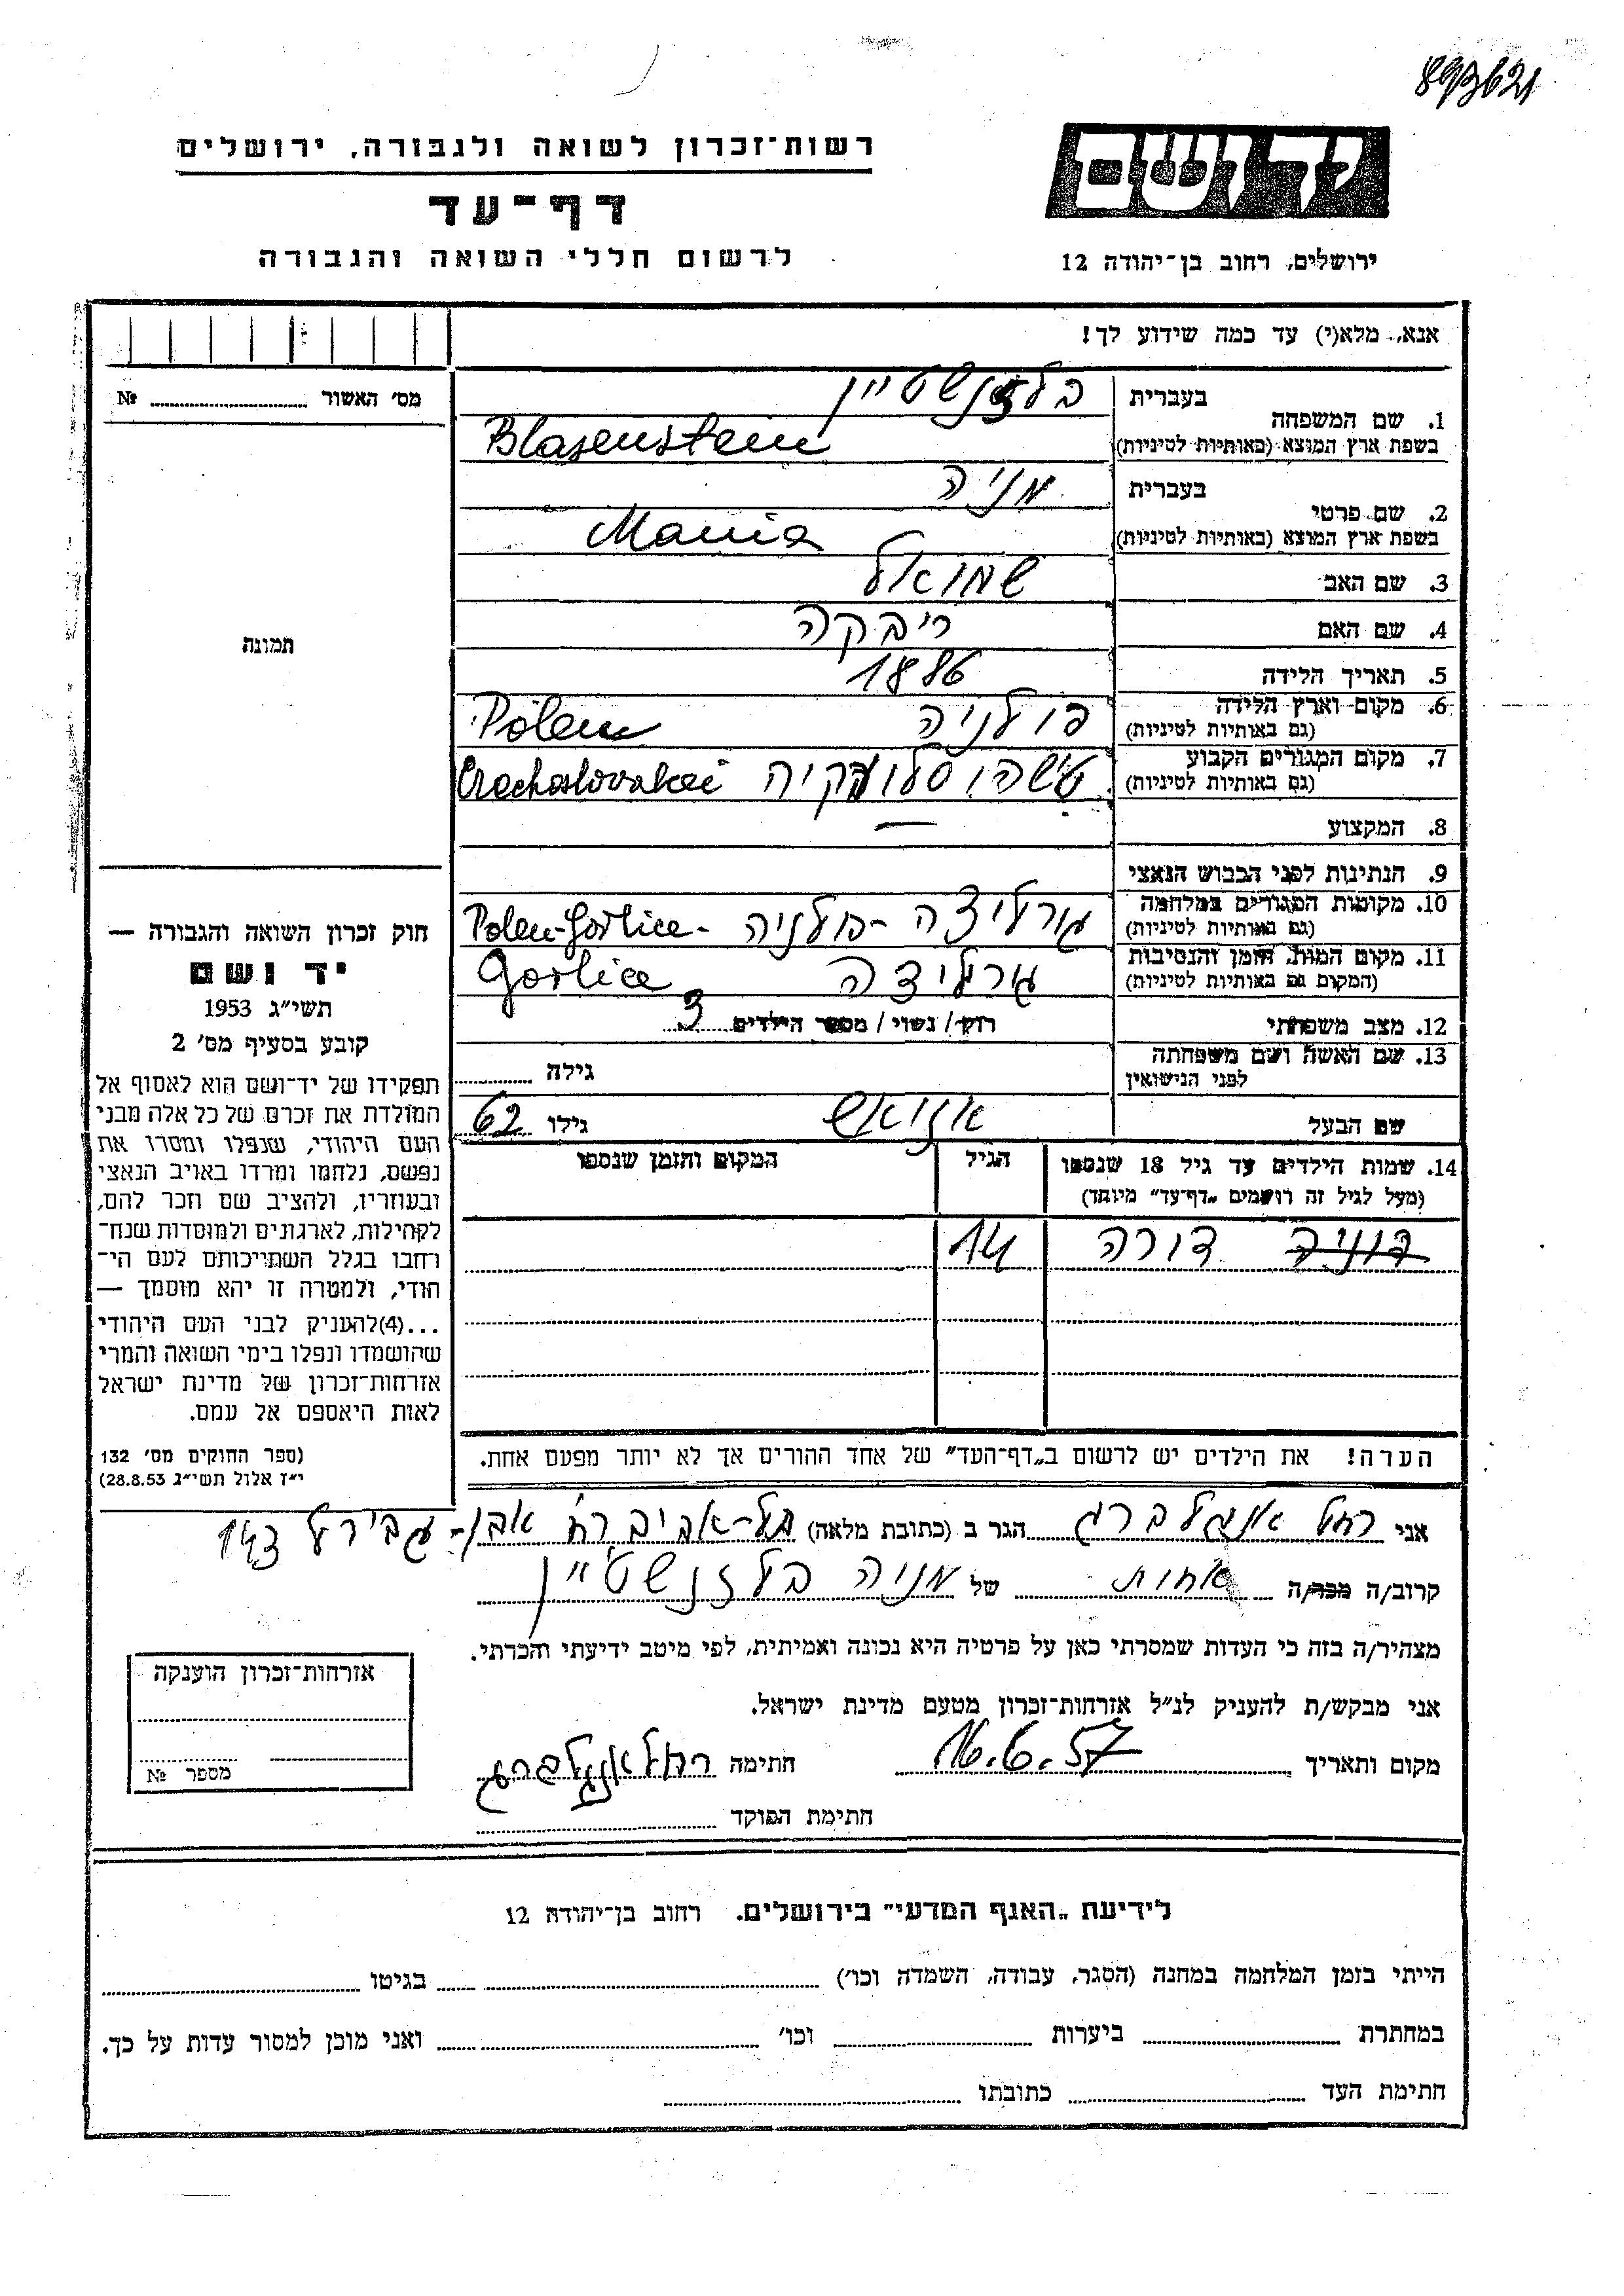 893621
יד ושם
ירושלים, רחוב בן־יהודה 12
רשות־זכרון לשואה ולגבורה, ירושלים
דף־עד
לרשום חללי השואה והגבורה
אנא, מלא(י) עד כמה שידוע לך!
מס׳ האשור № 
תמונה
1. שם המשפחה
בעברית בלזנשטיין
בשפת ארץ המוצא (באותיות לטיניות) Blasenstein
2. שם פרטי
בעברית מניה
בשפת ארץ המוצא (באותיות לטיניות) Mania
3. שם האב שמואל
4. שם האם ריבקה
5. תאריך הלידה 1886
6. מקום וארץ הלידה פולניה Polen
(גם באותיות לטיניות)
7. מקום המגורים הקבוע
(גם באותיות לטיניות)
8. המקצוע —
9. הנתינות לפני הכבוש הנאצי
10. מקומות המגורים במלחמה גורליצה - פולניה Polen-Gorlice-
(גם באותיות לטיניות)
11. מקום המות, הזמן והנסיבות גורליצה Gorlice
(המקום גם באותיות לטיניות)
12. מצב משפחתי רוק/ נשוי / מספר הילדים 3
13. שם האשה ושם משפחתה
לפני הנישואין גילה
שם הבעל גילו 62
14. שמות הילדים עד גיל 18 שנספו הגיל המקום והזמן שנספו
(מעל לגיל זה רושמים „דף־עד״ מיוחד)
דורה 14
הערה! את הילדים יש לרשום ב„דף־העד״ של אחד ההורים אך לא יותר מפעם אחת.
חוק זכרון השואה והגבורה —
יד ושם
תשי״ג 1953
קובע בסעיף מס׳ 2
תפקידו של יד־ושם הוא לאסוף אל
המולדת את זכרם של כל אלה מבני
העם היהודי, שנפלו ומסרו את
נפשם, נלחמו ומרדו באויב הנאצי
ובעוזריו, ולהציב שם וזכר להם,
לקהילות, לארגונים ולמוסדות שנח־
רחבו בגלל השתייכותם לעם הי־
הודי, ולמטרה זו יהא מוסמך —
...(4)להעניק לבני העם היהודי
שהושמדו ונפלו בימי השואה והמרי
אזרחות־זכרון של מדינת ישראל
לאות היאספם אל עמם.
(ספר החוקים מס׳ 132
י״ז אלול תשי״ג 28.8.53)
אני רחל אנגלברג הגר ב (כתובת מלאה) תל-אביב רח׳ אבן-גבירול 143
קרוב/ה מכר/ה אחות של מניה בלזנשטיין
מצהיר/ה בזה כי העדות שמסרתי כאן על פרטיה היא נכונה ואמיתית, לפי מיטב ידיעתי והכרתי.
אני מבקש/ת להעניק לנ״ל אזרחות־זכרון מטעם מדינת ישראל.
מקום ותאריך 16.6.57 חתימה רחל אנגלברג
חתימת הפוקד
אזרחות־זכרון הוענקה
מספר №
לידיעת „האגף המדעי״ בירושלים. רחוב בן־יהודה 12
הייתי בזמן המלחמה במחנה (הסגר, עבודה, השמדה וכו׳) בגיטו
במחתרת ביערות וכו׳ ואני מוכן למסור עדות על כך.
חתימת העד כתובתו